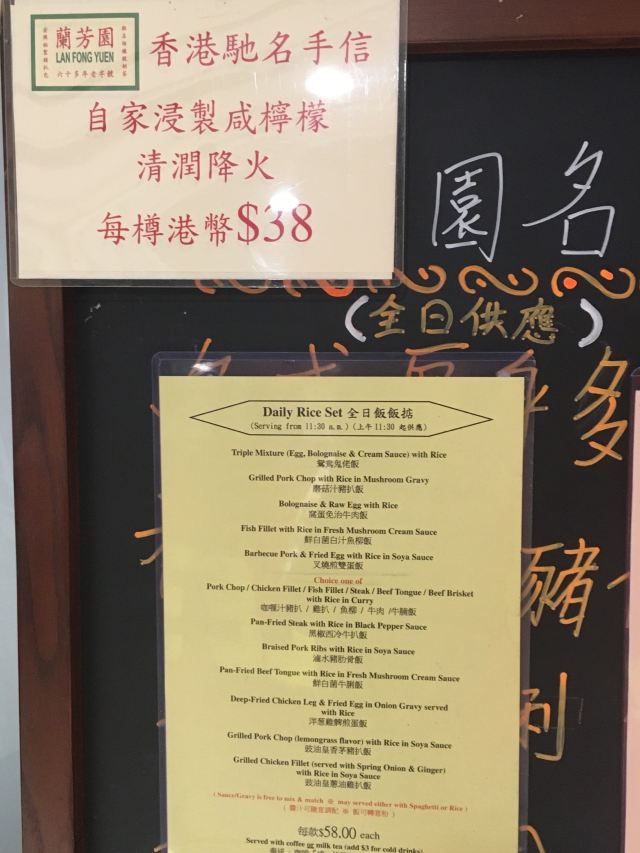 蘭芳園
LAN FONG YUEN
六十多年老字號
香港馳名手信
自家浸製咸檸檬
清潤降火
每樽港幣$38
園 名
(全日供應)
Daily Rice Set 全日飯飯掂
(Serving from 11:30 a.m.) (上午11:30 起供應)
Triple Mixture (Egg, Bolognaise & Cream Sauce) with Rice
鴛鴦鬼佬飯
Grilled Pork Chop with Rice in Mushroom Gravy
蘑菇汁豬扒飯
Bolognaise & Raw Egg with Rice
窩蛋免治牛肉飯
Fish Fillet with Rice in Fresh Mushroom Cream Sauce
鮮白菌白汁魚柳飯
Barbecue Pork & Fried Egg with Rice in Soya Sauce
叉燒煎雙蛋飯
Choice one of
Pork Chop / Chicken Fillet / Fish Fillet / Steak / Beef Tongue / Beef Brisket
with Rice in Curry
咖喱汁豬扒 / 雞扒 / 魚柳 / 牛肉 /牛腩飯
Pan-Fried Steak with Rice in Black Pepper Sauce
黑椒西冷牛扒飯
Braised Pork Ribs with Rice in Soya Sauce
滷水豬肋骨飯
Pan-Fried Beef Tongue with Rice in Fresh Mushroom Cream Sauce
鮮白菌牛脷飯
Deep-Fried Chicken Leg & Fried Egg in Onion Gravy served
with Rice
洋葱雞髀煎蛋飯
Grilled Pork Chop (lemongrass flavor) with Rice in Soya Sauce
豉油皇香茅豬扒飯
Grilled Chicken Fillet (served with Spring Onion & Ginger)
with Rice in Soya Sauce
豉油皇蔥油雞扒飯
( Sauce/Gravy is free to mix & match ※ may served either with Spaghetti or Rice )
( 醬汁可隨意調配 ※ 飯可轉意粉 )
每款$58.00 each
Served with coffee or milk tea (add $3 for cold drinks)
多
豬